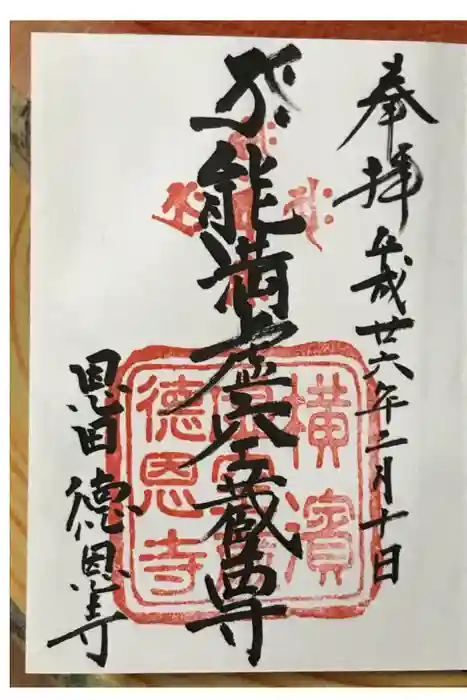 奉拝 平成廿六年二月十日
能満虚空蔵尊
恩田 徳恩寺
横濱
德恩寺